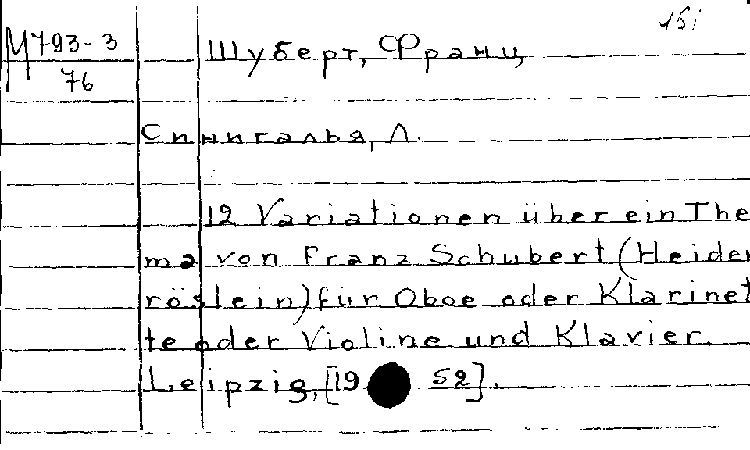 М793-3
76
Шуберт, Франц
Синигалья, Л.
12 Variationen über ein The
ma von Franz Schubert (Heiden
röslein) für Oboe oder Klarinet
te oder Violine und Klavier.
Leipzig, [19 52].